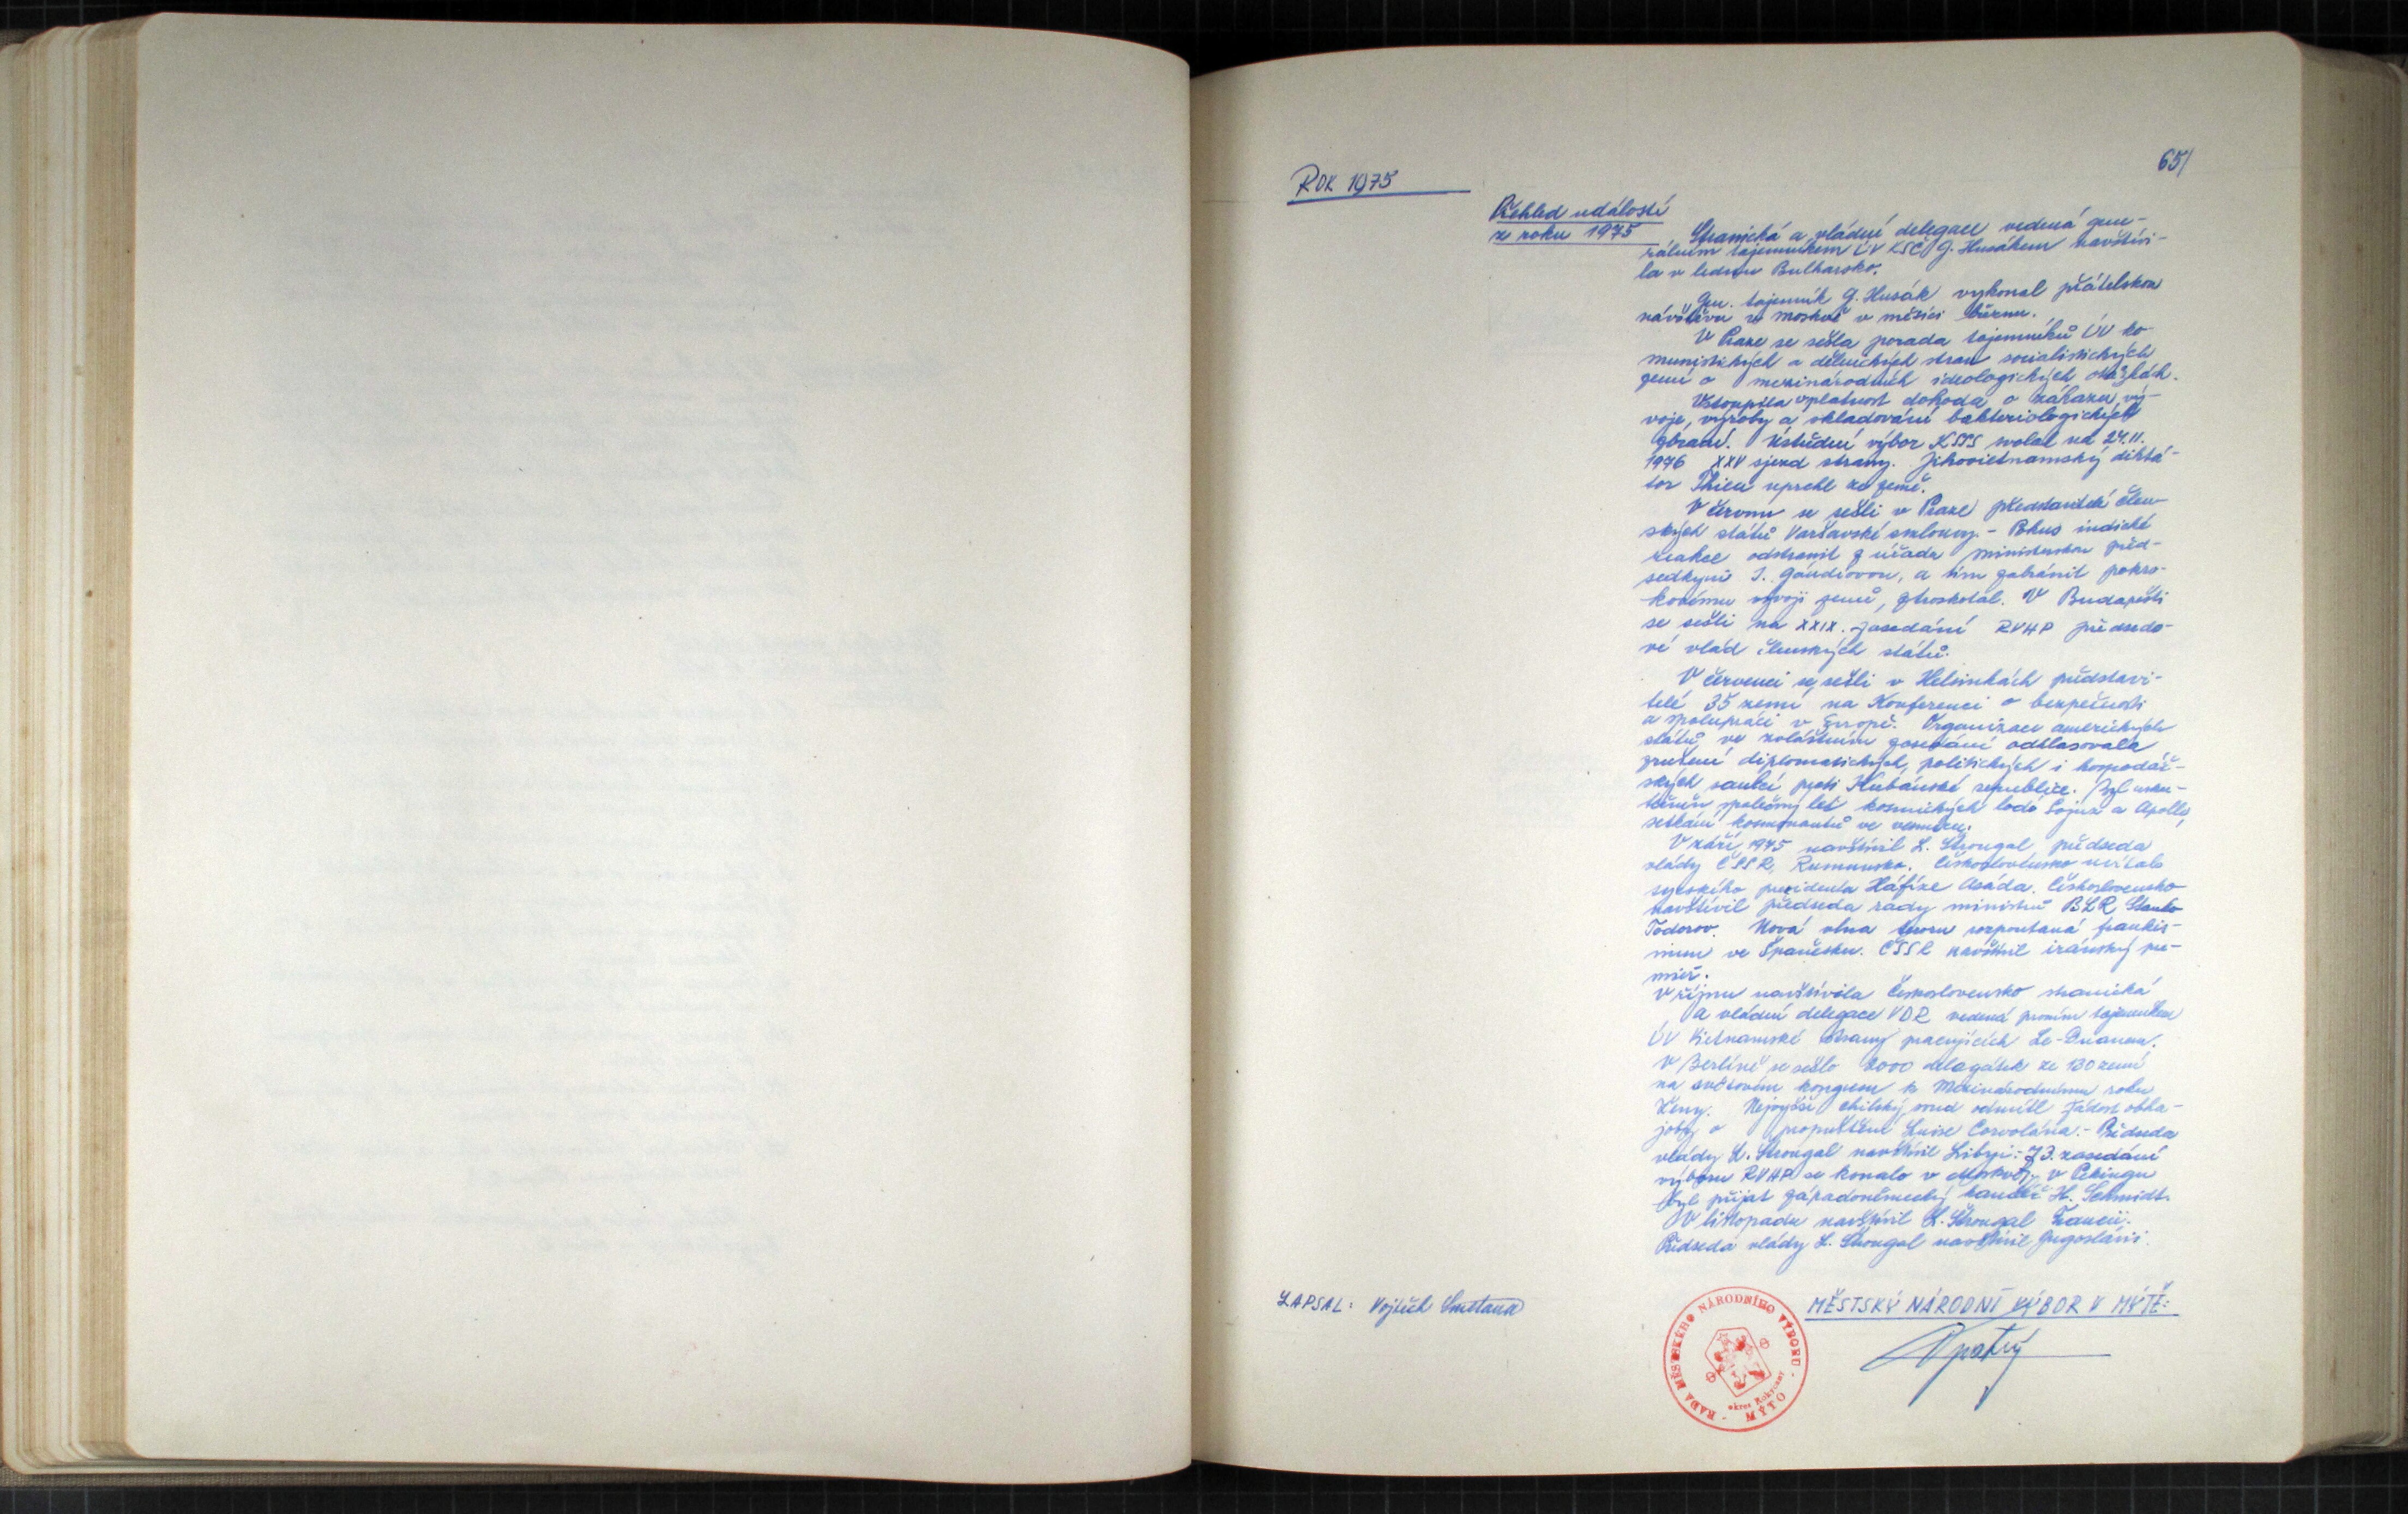 65/
Rok 1975
Přehled událostí
z roku 1975
Stranická a vládní delegace vedená gene-
rálním tajemníkem ÚV KSČ G. Husákem navštívi-
la v lednu Bulharsko.
Gen. tajemník G. Husák vykonal přátelskou
návštěvu v Moskvě v měsíci březnu.
V Praze se sešla porada tajemníků ÚV ko-
munistických a dělnických stran socialistických
zemí o mezinárodních ideologických otázkách.
Vstoupila v platnost dohoda o zákazu vý-
voje, výroby a skladování bakteriologických
zbraní. Ústřední výbor KSSS svolal na 24.II.
1976 XXV sjezd strany. Jihovietnamský diktá-
tor Thieu uprchl ze země.
V červnu se sešli v Praze představitelé člen-
ských států Varšavské smlouvy. - Pokus indické
reakce odstranit z úřadu ministerskou před-
sedkyni I. Gándiovou, a tím zabránit pokro-
kovému vývoji země, ztroskotal. V Budapešti
se sešli na XXIX. zasedání RVHP předsedo-
vé vlád členských států.
V červenci se sešli v Helsinkách představi-
telé 35 zemí na Konferenci o bezpečnosti
a spolupráci v Evropě. Organizace amerických
států ve zvláštním zasedání odhlasovala
zrušení diplomatických, politických i hospodář-
ských sankcí proti Kubánské republice. Byl usku-
tečněn společný let kosmických lodí Sojuz a Apollo,
setkání kosmonautů ve vesmíru.
V září 1975 navštívil L. Štrougal předseda
vlády ČSSR, Rumunsko. Československo uvítalo
syrského prezidenta Háfize Asáda. Československo
navštívil předseda rady ministrů BLR Stanko
Todorov. Nová vlna teroru rozpoutaná frankis-
mem ve Španělsku. ČSSR navštívil iránský pre-
miér.
V říjnu navštívila Československo stranická
a vládní delegace VDR vedená prvním tajemníkem
ÚV Vietnamské strany pracujících Le-Duanem.
V Berlíně se sešlo 2000 delegátek ze 130 zemí
na světovém kongresu k Mezinárodnímu roku
ženy. Nejvyšší chilský soud odmítl žádost obha-
joby o propuštění Luise Corvolána. - Předseda
vlády L. Štrougal navštívil Libyi. 73. zasedání
výboru RVHP se konalo v Moskvě, v Pekingu
byl přijat západoněmecký kancléř H. Schmidt.
V listopadu navštívil L. Štrougal Francii.
Předseda vlády L. Štrougal navštívil Jugoslávii.
ZAPSAL: Vojtěch Smetana
MĚSTSKÝ NÁRODNÍ VÝBOR V MÝTĚ:
Opatrý
RADA MĚSTSKÉHO NÁRODNÍHO VÝBORU
okres Rokycany
MÝTO